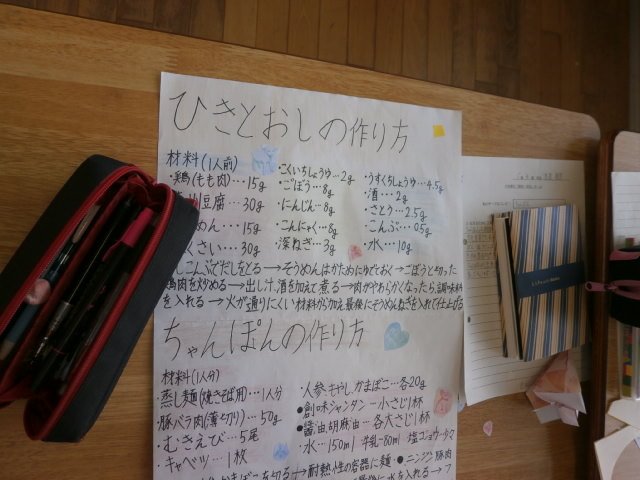 ひきとおしの作り方
材料(1人前)
・鶏(もも肉)…15g
豆腐…30g
めん…15g
くさい…30g
・こくいちしょうゆ…2g
・ごぼう…8g
・にんじん…8g
・こんにゃく…8g
・深ねぎ…3g
・うすくちしょうゆ…4.5g
・酒…2g
・さとう…2.5g
・こんぶ…0.5g
・水…10g
しこんぶでだしをとる→そうめんはかためにゆでておく→ごぼうと切った
鶏肉を炒める→出し汁、酒を加えて煮る→肉がやわらかくなったら、調味料
を入れる→火が通りにくい材料から加え最後にそうめんねぎを入れて仕上げる
ちゃんぽんの作り方
材料(1人分)
・蒸し麺(焼きそば用)…1人分
・豚バラ肉(薄切り)…50g
・むきえび…5尾
・キャベツ…1枚
・人参もやしかまぼこ…各20g
●創味シャンタン…小さじ1杯
●醤油、胡麻油…各大さじ1杯
・水…150ml 牛乳…80ml 塩コショウ…少々
かまぼこを切る→耐熱性の容器に麺・●ニンジン豚肉